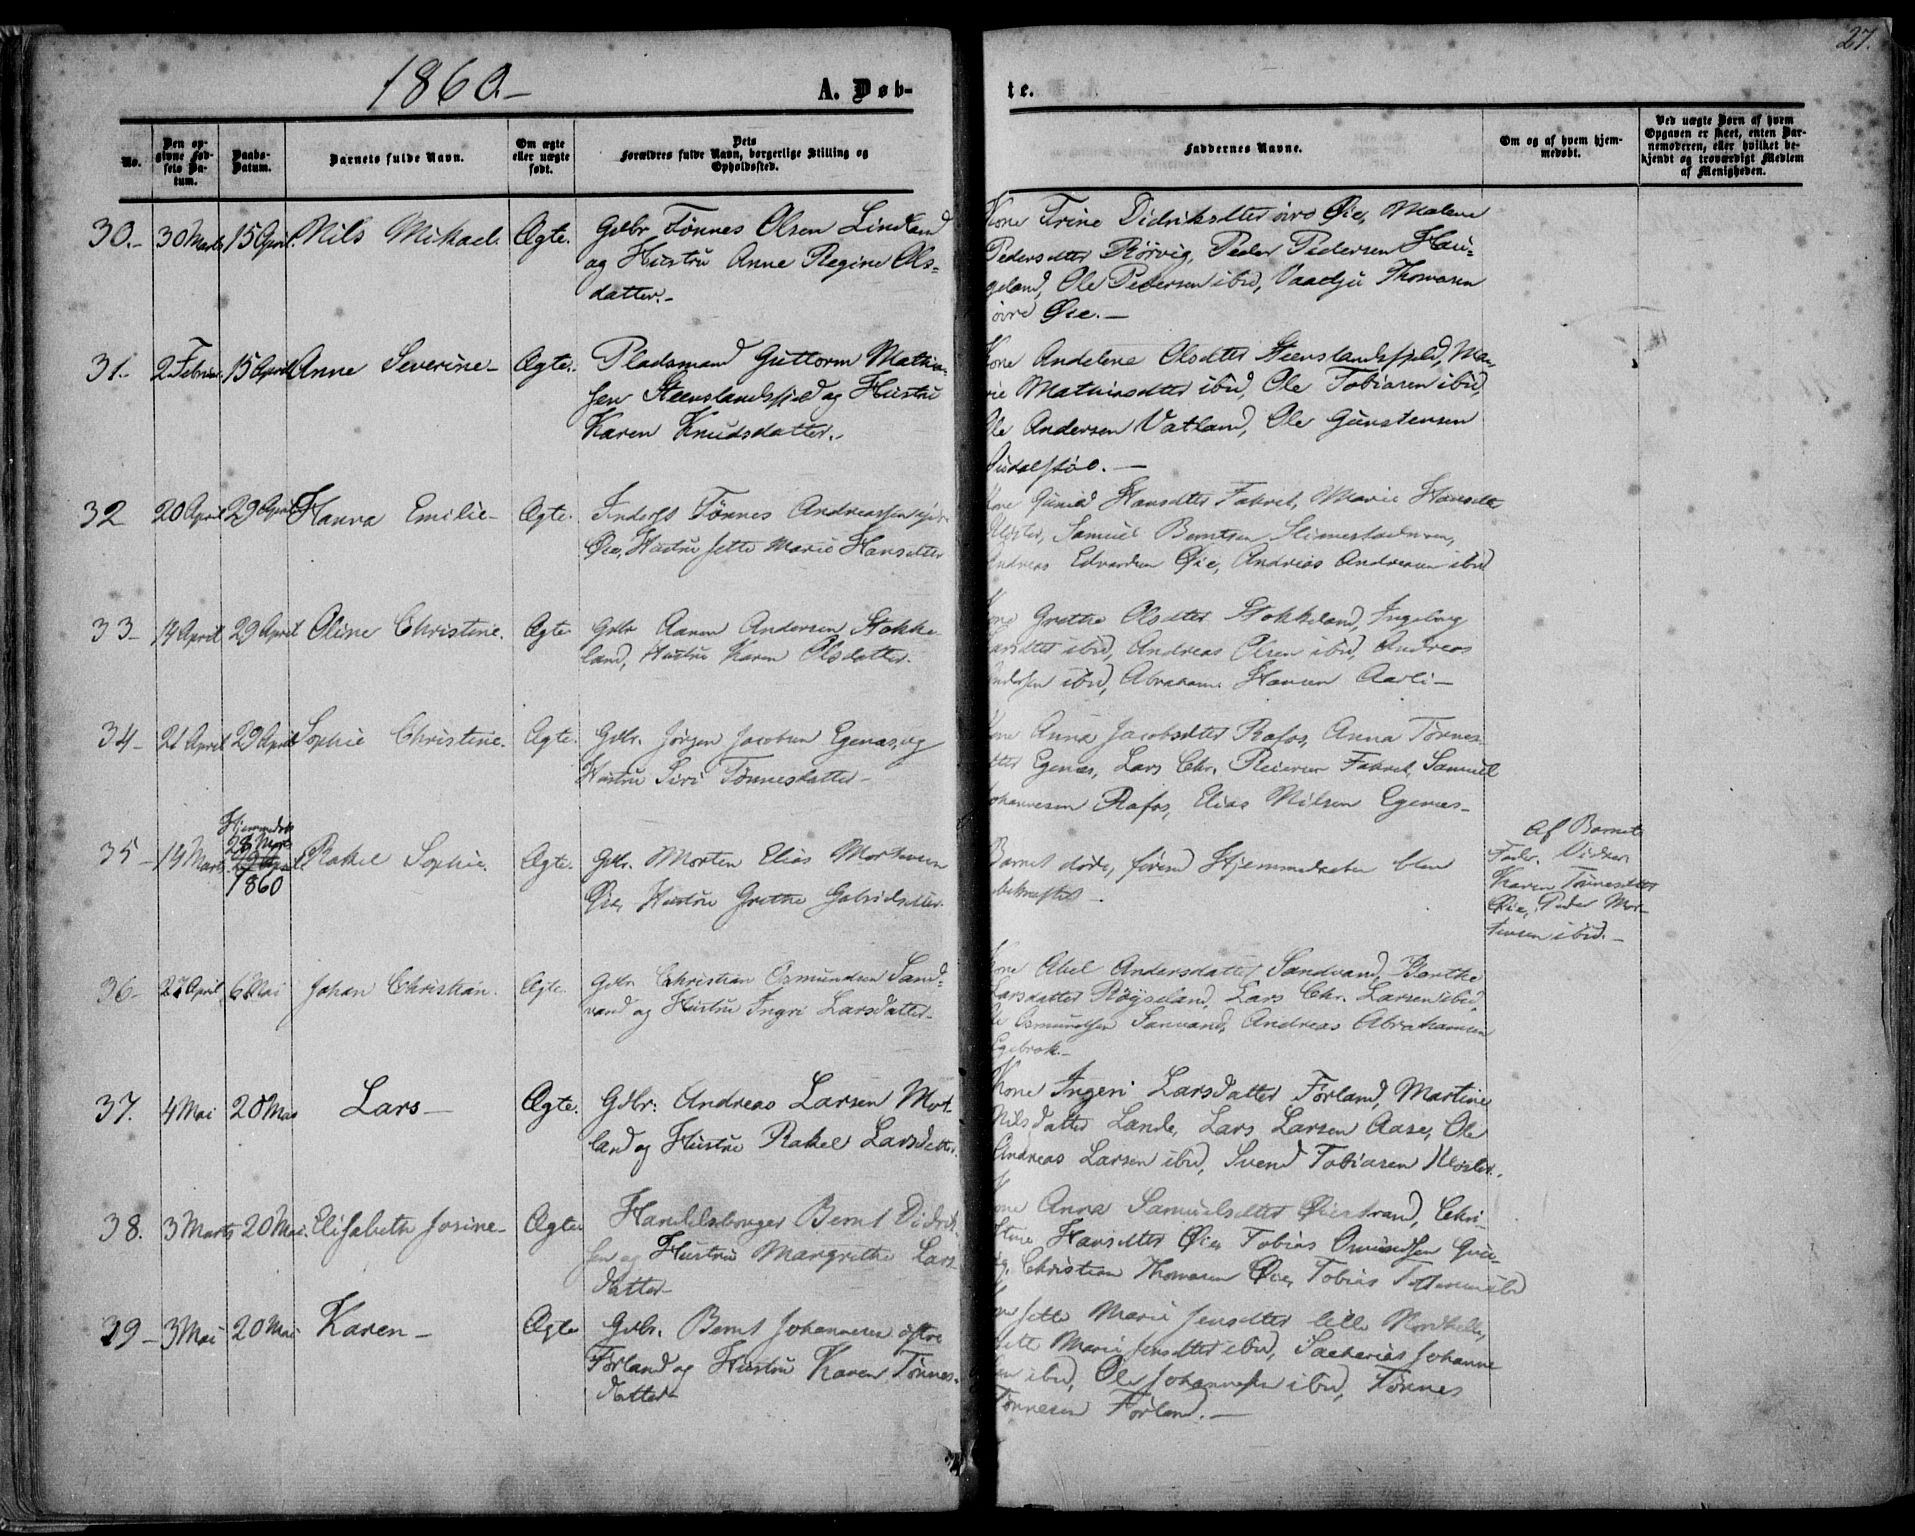 27.
1860.-
A. Døb-
te.
No.
Den op-
givne Fød-
sels Da-
tum.
Daabs-
Datum.
Barnets fulde Navn.
Om ægte
eller uægte
født.
Dets
Forældres fulde Navn, borgerlige Stilling og
Opholdssted.
Faddernes Navne.
Om og af hvem hjem-
medøbt.
Ved uægte Børn af hvem
Opgaven er skeet, enten Bar-
nemoderen, eller hvilket be-
kjendt og troværdigt Medlem
af Menigheden.
30.- 30 Marts 15 April. Nils Mikael. Ægte. Gdbr Tønnes Olsen Lindland
og Hustru Anne Regine Ols-
datter.-
Kone Trine Didriksdtter øvre Øie, Malene
Pedersdtter Rørvig, Peder Pedersen Hau-
geland, Ole Pedersen ibid, Thomasen
øvre Øie.-
31.- 2 Febru. 15 April Anne Severine- Ægte. Pladsmand Guttorm Mathia-
sen Steenslandsfjeld og Hustru
Karen Knudsdatter.-
Kone Andelene Olsdtter Steenslandsfjeld, Ma-
rie Mathiasdtter ibid, Ole Tobiasen ibid,
Ole Andersen Vatland, Ole Gunstensen
32 20 April 29 April Hanna Emilie- Ægte. Tønnes Andreassen
Øie, Hustru Jette Marie Hansdtter
Kone Hansdtter Marie Hansdtr
Samuel Berntsen
Andreas Edvardsen Øie, Andreas Andreasen ibid
33- 14 April 29 April Oline Christine. Ægte Gdbr Aanen Andersen Stokke-
land, Hustru Karen Olsdatter.
Kone Grethe Olsdtter Stokkeland, Ingeborg
ibid, Andreas Olsen ibid, Andreas
Andersen ibid, Abraham Hansen Aarli-
34- 21 April 29 April Sophie Christine. Ægte. Gdbr. Jørgen Jacobsen Egenæs, og
Hustru Siri Tønnesdatter-
Kone Anna Jacobsdtter Rafos, Anna Tønnes-
dtter Egenæs, Lars Chr. Reiersen Samuel
Johannesen Rafos, Elias Nilsen Egenæs-
35- 14 Marts Hjemmedøbt
28 Marts
1860
Rakel Sophie. Ægte. Gdbr. Morten Elias Mortensen
Øie, Hustru Grethe Gabrielsdtter
Barnet døde, førend Hjemmedaaben blev
bekræftet-
Af Barnets
Fader. Vidner
Karen Tønnesdtter
Øie, Peder Mor-
tensen ibid.-
36- 27 April 6 Mai Johan Christian. Ægte. Gdbr Christian Osmundsen Sand-
vand og Hustru Ingri Larsdatter-
Kone Abel Andersdatter Sandvand, Berthe
Larsdatter Røyseland, Lars Chr. Larsen ibid,
Ole Osmundsen Sanvand, Andreas Abrahamsen
Egebrok-
37. 4 Mai 20 Mai Lars- Ægte. Gdbr: Andreas Larsen Mot-
land og Hustru Rakel Larsdatter.
Kone Ingeri Larsdatter Førland, Martine
Nilsdatter Lande, Lars Larsen Aase, Ole
Andreas Larsen ibid, Svend Tobiasen Kloster.
38. 3 Marts 20 Mai. Elisabeth Josine- Ægte Handelsborger Bernt Didrik-
sen og Hustru Margrethe Lars-
datter-
Kone Anna Samuelsdtter Øiestrand, Chri-
stine Hansdtter Øie, Tobias Omundsen
Christian Thomasen Øie, Tobias
39- 3 Mai 20 Mai Karen- Ægte Gdbr. Bernt Johannesen østre
Førland og Hustru Karen Tønnes-
datter-
Kone Jette Marie Jensdtter lille
Jette Marie Jensdtter ibid, Sacharias Johanne-
sen ibid, Ole Johannesen ibid, Tønnes
Tønnesen Førland.-